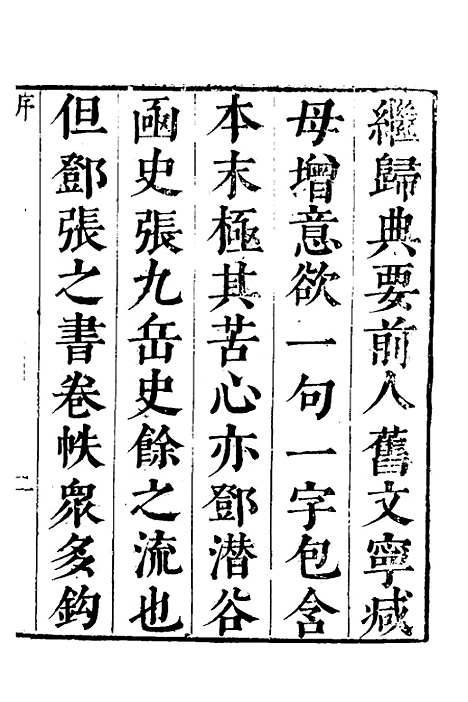 繼歸典要前人舊文寧减
毋增意欲一句一字包含
本末極其苦心亦鄧潜谷
凾史張九岳史餘之流也
但鄧張之書卷帙衆多鈎
序
二